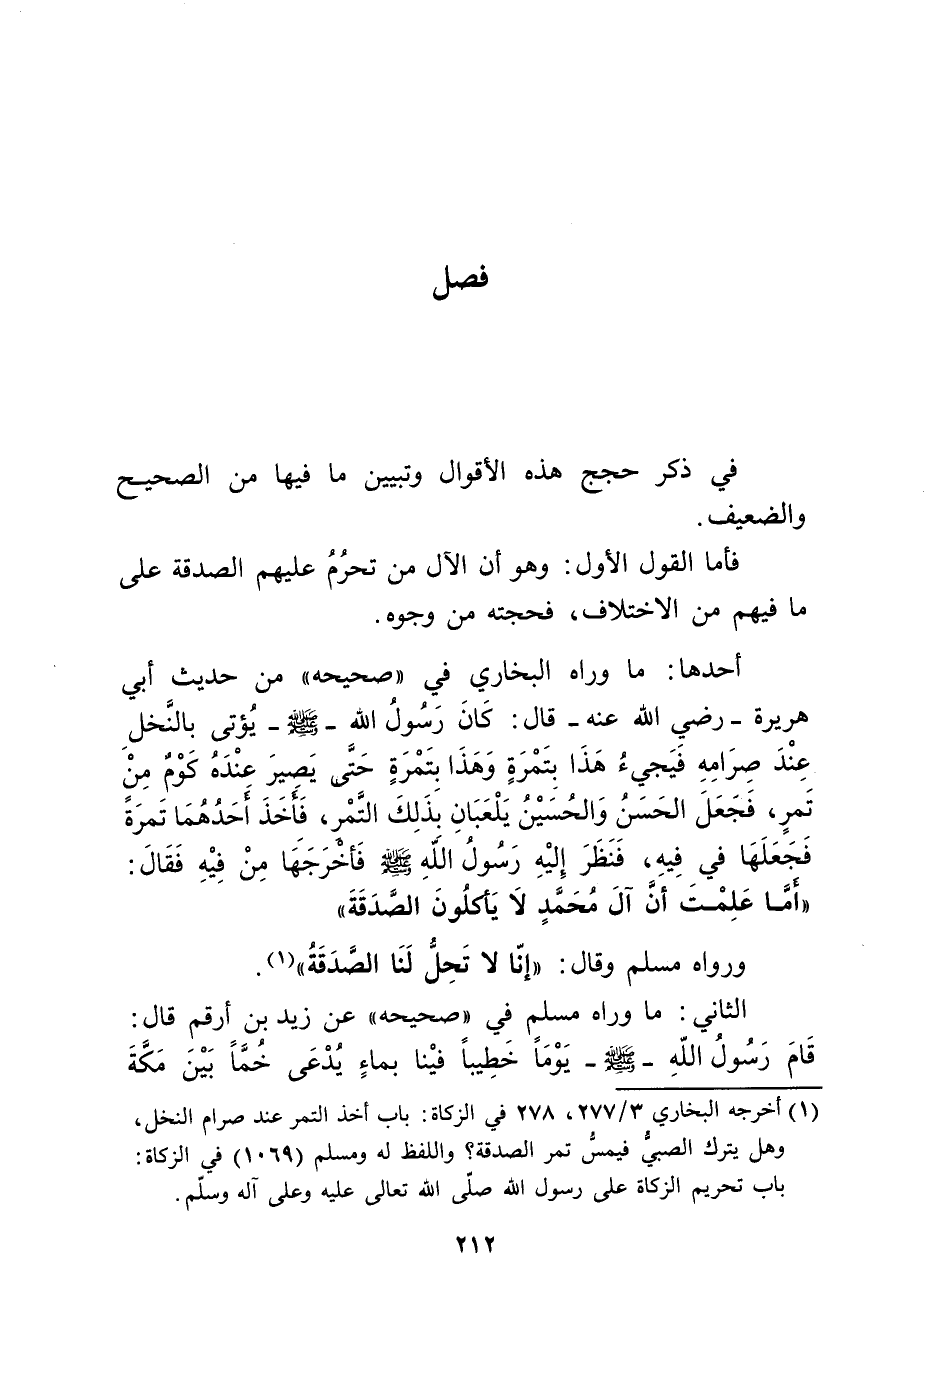 فصل
في ذكر حجج هذه الأقوال وتبيين ما فيها من الصحيح
والضعيف.
فأما القول الأول: وهو أن الآل من تحرُمُ عليهم الصدقة على
ما فيهم من الاختلاف، فحجته من وجوه.
أحدها: ما وراه البخاري في «صحيحه» من حديث أبي
هريرة ـ رضي الله عنه ـ قال: كَانَ رَسُولُ الله ـ ﷺ ـ يُؤتى بالنَّخل
عِنْدَ صِرَامِهِ فَيَجيءُ هَذَا بِتَمْرَةٍ وَهَذَا بِتَمْرَةٍ حَتَّى يَصِيرَ عِنْدَهُ كَوْمٌ مِنْ
تَمرٍ، فَجَعَلَ الحَسَنُ وَالحُسَيْنُ يَلْعَبَانِ بِذَلِكَ التَّمْرِ، فَأَخَذَ أَحَدُهُمَا تَمرَةً
فَجَعَلَهَا في فِيهِ، فَنَظَرَ إِلَيْهِ رَسُولُ اللَّهِ ﷺ فَأَخْرَجَهَا مِنْ فِيْهِ فَقَالَ:
«أَمَّا عَلِمْتَ أنَّ آلَ مُحَمَّدٍ لَا يَأكلُونَ الصَّدَقَةَ»
ورواه مسلم وقال: «إنّا لا تَحِلُّ لَنَا الصَّدَقَةُ»(١).
الثاني: ما وراه مسلم في «صحيحه» عن زيد بن أرقم قال:
قَامَ رَسُولُ اللَّهِ ـ ﷺ ـ يَوْمَاً خَطِيباً فيْنا بماءٍ يُدْعَى خُمَّاً بَيْنَ مَكَّةَ
(١) أخرجه البخاري ٢٧٧/٣، ٢٧٨ في الزكاة: باب أخذ التمر عند صرام النخل،
وهل يترك الصبيُّ فيمسُّ تمر الصدقة؟ واللفظ له ومسلم (١٠٦٩) في الزكاة:
باب تحريم الزكاة على رسول الله صلّى الله تعالى عليه وعلى آله وسلّم.
٢١٢